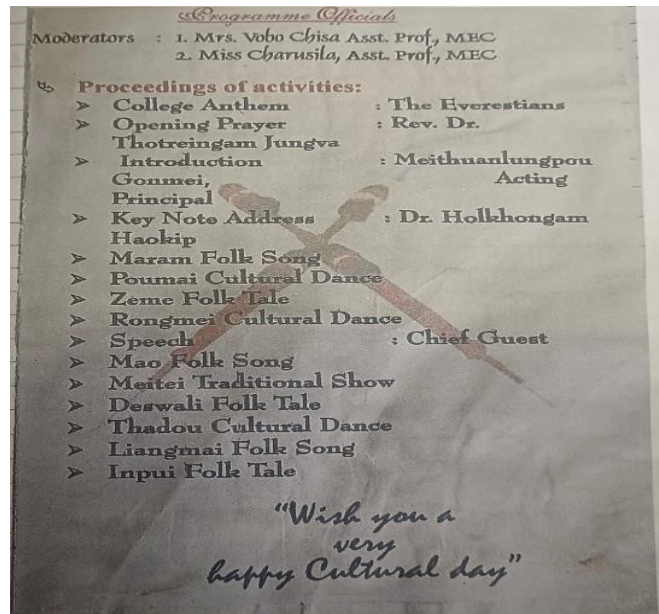 Programme Officials
Moderators : 1. Mrs. Vobo Chisa Asst. Prof., MEC
2. Miss Charusila, Asst. Prof., MEC
Proceedings of activities:
➤ College Anthem : The Everestians
➤ Opening Prayer : Rev. Dr.
Thotreingam Jungva
➤ Introduction : Meithuanlungpou
Gonmei, Acting
Principal
➤ Key Note Address : Dr. Holkhongam
Haokip
➤ Maram Folk Song
➤ Poumai Cultural Dance
➤ Zeme Folk Tale
➤ Rongmei Cultural Dance
➤ Speech : Chief Guest
➤ Mao Folk Song
➤ Meitei Traditional Show
➤ Deswali Folk Tale
➤ Thadou Cultural Dance
➤ Liangmai Folk Song
➤ Inpui Folk Tale
"Wish you a
very
happy Cultural day"